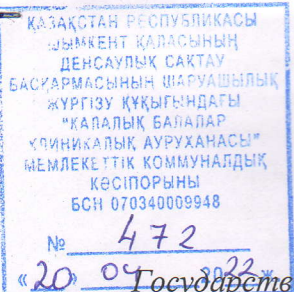 ҚАЗАҚСТАН РЕСПУБЛИКАСЫ
ШЫМКЕНТ ҚАЛАСЫНЫҢ
ДЕНСАУЛЫҚ САҚТАУ
БАСҚАРМАСЫНЫҢ ШАРУАШЫЛЫҚ
ЖҮРГІЗУ ҚҰҚЫҒЫНДАҒЫ
"ҚАЛАЛЫҚ БАЛАЛАР
КЛИНИКАЛЫҚ АУРУХАНАСЫ"
МЕМЛЕКЕТТІК КОММУНАЛДЫҚ
КӘСІПОРЫНЫ
БСН 070340009948
№ 472
«20» 04 2022 ж
Государстве